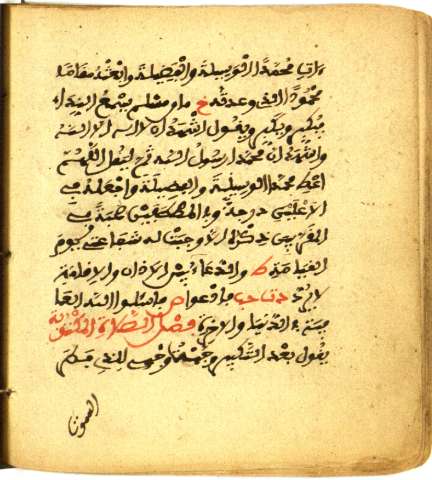 ءات محمدا الوسيلة والفضيلة وابعثه مقاما
محمودا الذي وعدته خ ما من مسلم يسمع النداء
فيكبر ويكبر ويقول اشهد ان لا اله الا الله
واشهد ان محمدا رسول الله ثم ليقل اللهم
اعط محمدا الوسيلة والفضيلة واجعله في
الاعلين درجة وفي المصطفين محبته وفي
المقربين ذكره الا وجبت له شفاعتي يوم
القيامة ط والدعاء بين الاذان والاقامة
لا يرد فادعوا ص فاسئلوا الله العا
فية في الدنيا والاخرة فصل الصلاة المكتوبة
يقول بعد التكبير وجهت وجهي للذي فطر
السموات